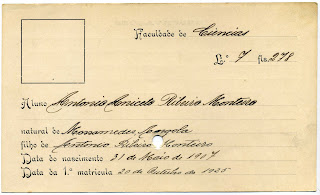 Faculdade de Ciências
L.º 7 fls. 278
Aluno António Aniceto Ribeiro Monteiro
natural de Mossamedes Angola
filho de António Ribeiro Monteiro
Data do nascimento 31 de Maio de 1907
Data da 1.ª matricula 20 de Outubro de 1925